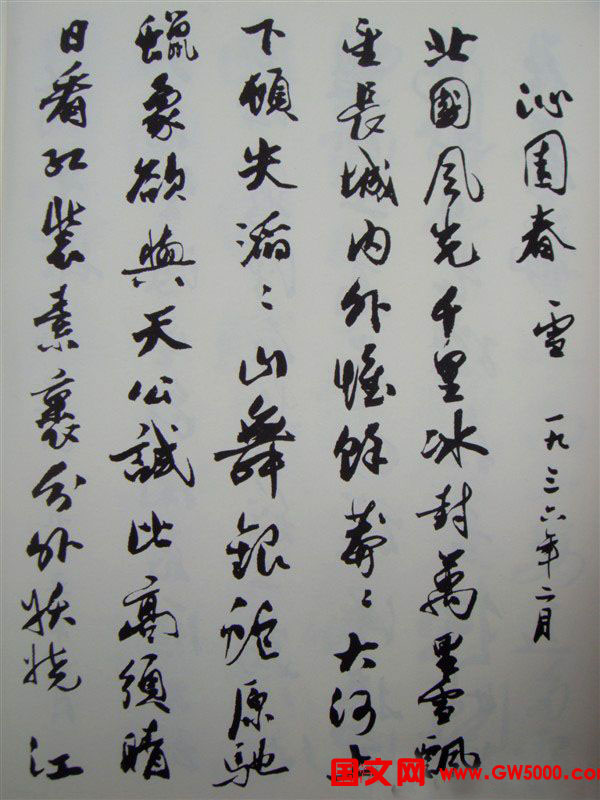 沁園春 雪 一九三六年二月
北國风光千里冰封萬里雪飄
望長城內外惟餘莽々大河上
下頓失滔々山舞銀蛇原馳
蠟象欲與天公試比高須晴
日看紅裝素裹分外妖嬈 江
国文网 www.GW5000.com